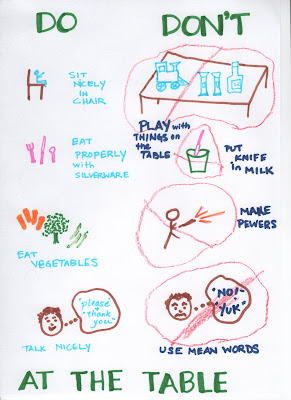 DO
DON'T
SIT
NICELY
IN
CHAIR
PLAY with
THINGS on
the
TABLE
EAT
PROPERLY
with
SILVERWARE
PUT
KNIFE
in MILK
MAKE
PEWERS
EAT
VEGETABLES
"please"
"thank
you"
TALK NICELY
"NO!"
"YUK"
USE MEAN WORDS
AT THE TABLE